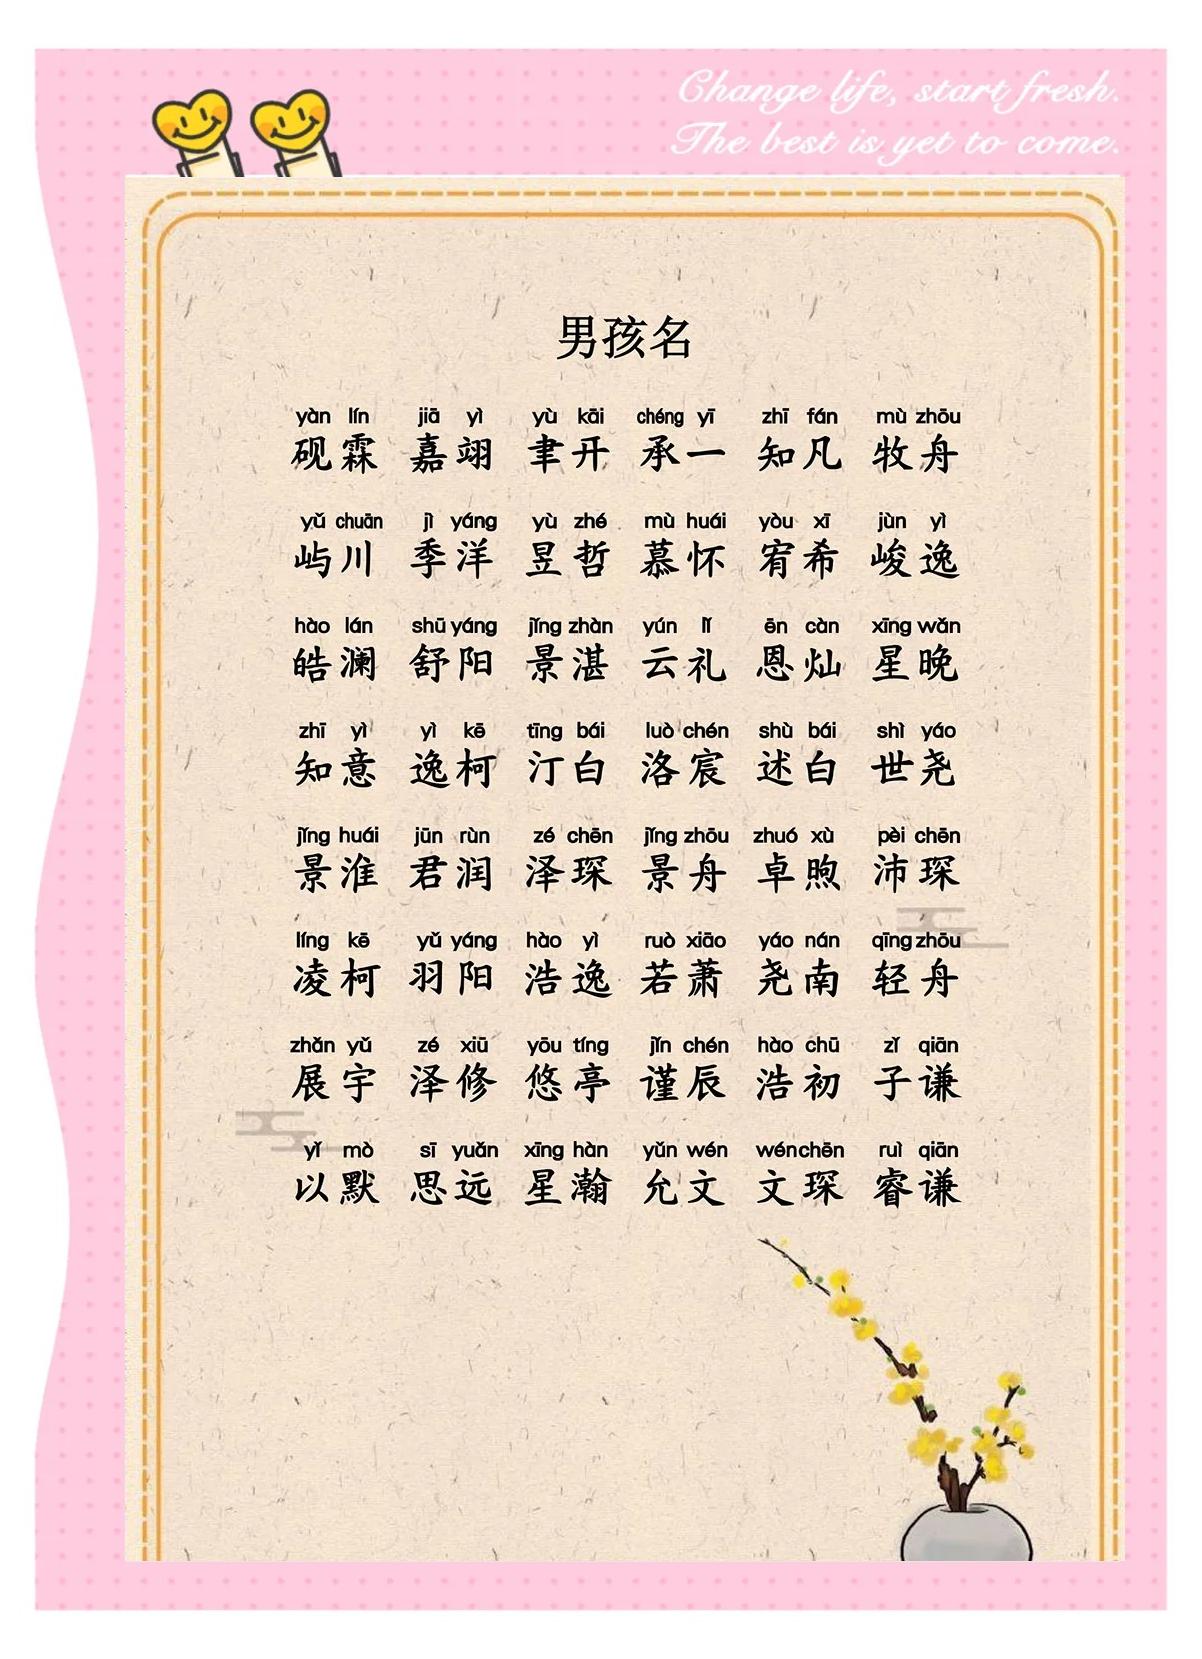 Change life, start fresh.
The best is yet to come.
男孩名
yàn lín jiā yì yù kāi chéng yī zhī fán mù zhōu
砚霖 嘉翊 聿开 承一 知凡 牧舟
yǔ chuān jì yáng yù zhé mù huái yòu xī jùn yì
屿川 季洋 昱哲 慕怀 宥希 峻逸
hào lán shū yáng jǐng zhàn yún lǐ ēn càn xīng wǎn
皓澜 舒阳 景湛 云礼 恩灿 星晚
zhī yì yì kē tīng bái luò chén shù bái shì yáo
知意 逸柯 汀白 洛宸 述白 世尧
jǐng huái jūn rùn zé chēn jǐng zhōu zhuó xù pèi chēn
景淮 君润 泽琛 景舟 卓煦 沛琛
líng kē yǔ yáng hào yì ruò xiāo yáo nán qīng zhōu
凌柯 羽阳 浩逸 若萧 尧南 轻舟
zhǎn yǔ zé xiū yōu tíng jǐn chén hào chū zǐ qiān
展宇 泽修 悠亭 谨辰 浩初 子谦
yǐ mò sī yuǎn xīng hàn yǔn wén wén chēn ruì qiān
以默 思远 星瀚 允文 文琛 睿谦